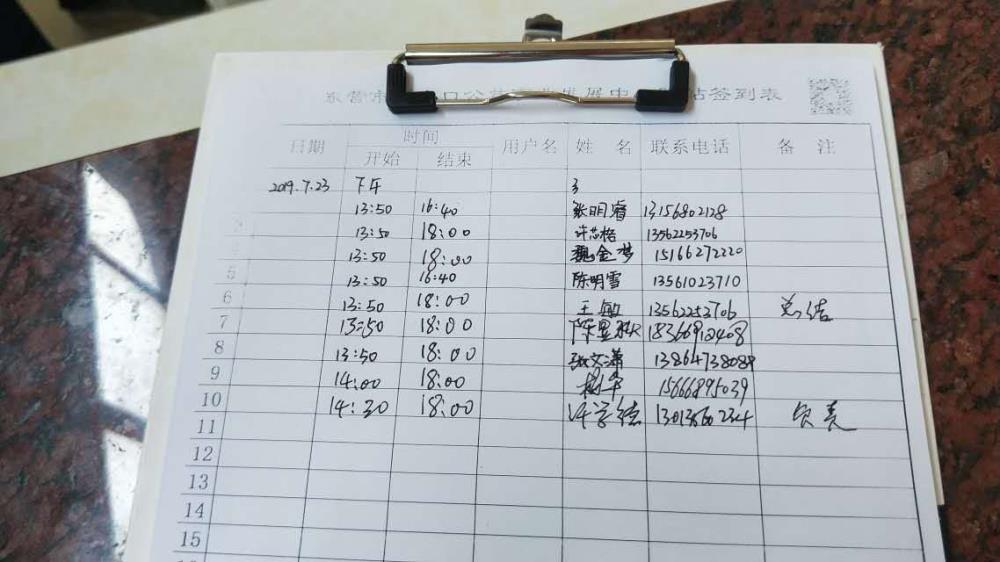 东营市 口公 展中 站签到表
日期 时间 用户名 姓 名 联系电话 备 注
开始 结束
2019.7.23 下午
13:50 16:40 张明睿 13156802128
13:50 18:00 许芯格 13562253706
13:50 18:00 魏金梦 15166272220
5 13:50 16:40 陈明雪 13561023710
6 13:50 18:00 王敏 13562253706 总结
7 13:50 18:00 陈昱 18366912408
8 13:50 18:00 张文潇 13864738089
9 14:00 18:00 15666895039
10 14:30 18:00 许学德 13013560234 负责
11
12
13
14
15